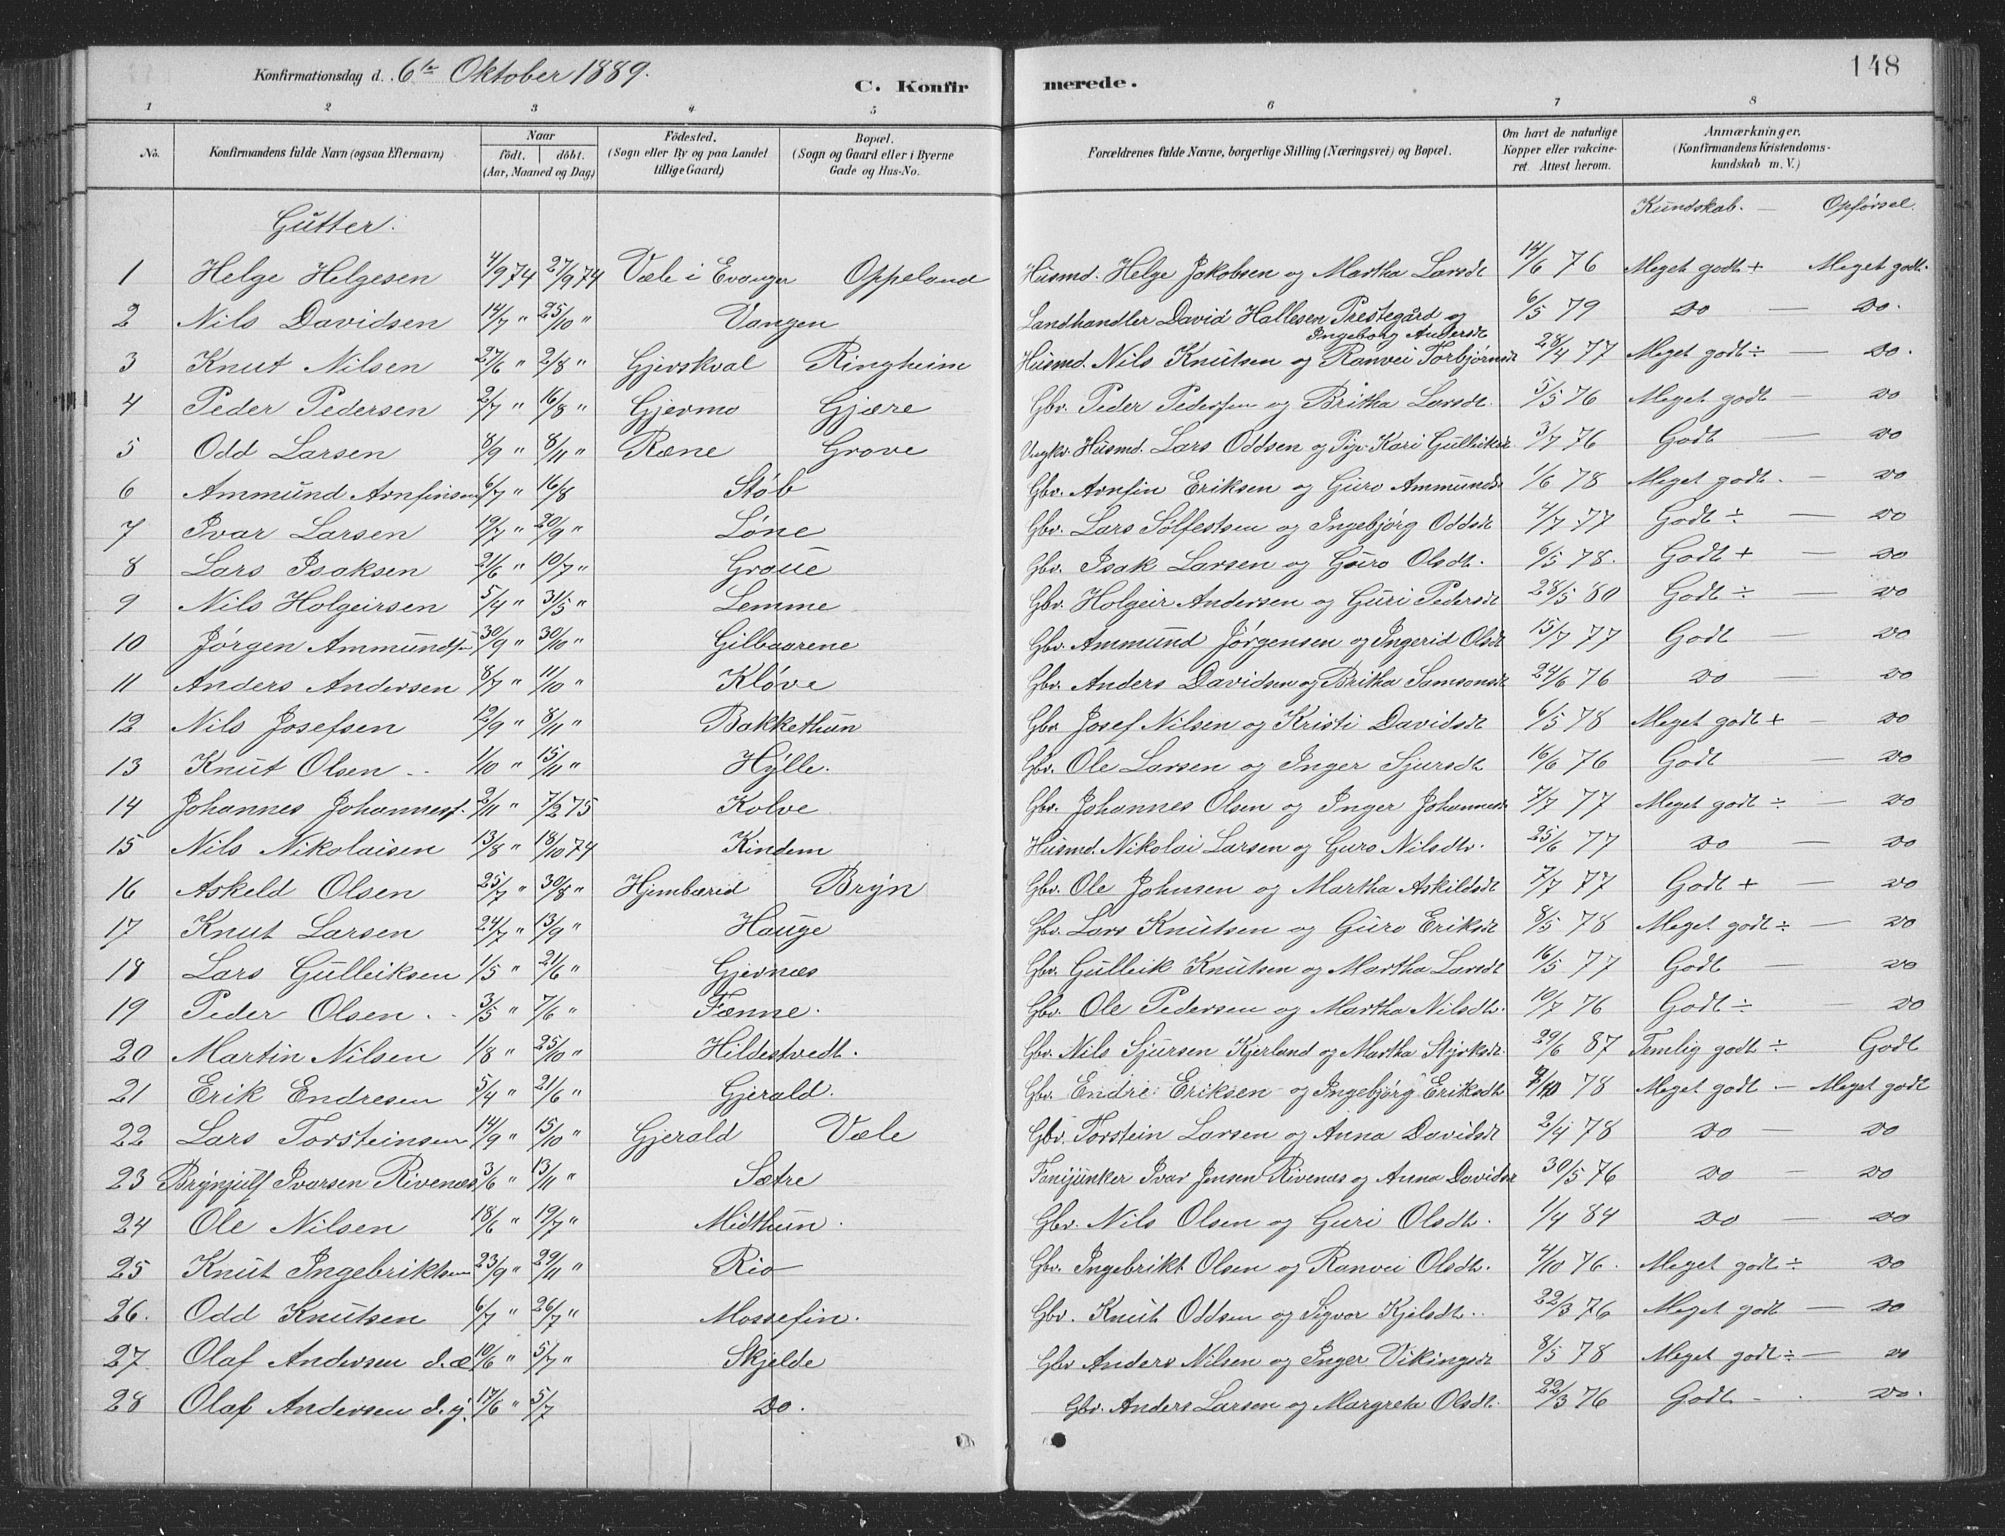 148
Konfirmationsdag d. 6te Oktober 1889.
C. Konfirmerede.
1 2 3 4 5 6 7 8
No. Konfirmandens fulde Navn (ogsaa Efternavn) Naar födt. döbt. (Aar, Maaned og Dag) Födested. (Sogn eller By og paa Landet tillige Gaard) Bopæl. (Sogn og Gaard eller i Byerne Gade og Hus-No. Forældrenes fulde Navne, borgerlige Stilling (Næringsvei) og Bopæl. Om havt de naturlige Kopper eller vakcineret. Attest herom. Anmærkninger. (Konfirmandens Kristendomskundskab m. V.)
Gutter. Kundskab. — Opførsel.
1 Helge Helgesen 4/9 74 27/9 74 Væle i Evanger Oppeland Husmd. Helge Jakobsen og Martha Larsdt 14/6 76 Meget godt + Meget godt.
2 Nils Davidsen 14/7 " 25/10 " Vangen Landhandler David Hallesen Prestegård og Ingeborg Andersdt 6/5 79 do — do.
3 Knut Nilsen 27/6 " 2/8 " Gjerskval Ringheim Husmd. Nils Knutsen og Ranvei Torbjørnsdt 28/4 77 Meget godt ÷ — do.
4 Peder Pedersen 2/7 " 16/8 " Gjermo Gjære Gbr. Peder Pedersen og Britha Larsdt. 5/5 76 Meget godt — do
5 Odd Larsen 8/9 " 8/11 " Ræne Grove Ungkr. Husmd. Lars Oddsen og Pige Kari Gulleiksdt 3/7 76 Godt — do
6 Ammund Arnfinsen 6/7 " 16/8 Støb Gbr. Arnfin Eriksen og Guro Ammundsdt 1/6 78 Meget godt. — do
7 Ivar Larsen 19/7 " 20/9 " Løne Gbr. Lars Sølfestsen og Ingebjørg Oddsdt 4/7 77 Godt ÷ — do
8 Lars Isaksen 21/6 " 10/7 " Graue Gbr. Isak Larsen og Guro Olsdt. 6/5 78. Godt + — do
9 Nils Holgeirsen 5/4 " 31/5 " Lemme Gbr. Holgeir Andersen og Guri Pedersdt 28/5 80 Godt ÷ — do
10 Jørgen Ammundsen 30/9 " 30/10 " Gilbaarene Gbr. Ammund Jørgensen og Ingerid Olsdt 15/7 77 Godt — do
11 Anders Andersen 8/7 " 11/10 " Kløve Gbr. Anders Davidsen og Britha Samsonsdt 24/6 76 do do
12 Nils Josefsen 12/9 " 8/11 " Bakkethun Gbr. Josef Nilsen og Kristi Davidsdt 6/5 78 Meget godt + — do
13 Knut Olsen 1/10 " 15/11 " Hylle. Gbr. Ole Larsen og Inger Sjursdt 16/6 76 Godt — do
14 Johannes Johanness. 2/11 " 7/2 75 Kolve Gbr. Johannes Olsen og Inger Johannesdt 7/7 77 Meget godt ÷ — do
15 Nils Nikolaisen 13/8 " 18/10 74 Kindem Husmd. Nikolai Larsen og Guro Nilsdtr. 25/6 77 do — do
16 Askeld Olsen 25/7 " 30/8 " Himbærid Bryn Gbr. Ole Johnsen og Martha Askildsdt 7/7 77 Godt + — do
17 Knut Larsen 24/7 " 13/9 " Hauge Gbr. Lars Knutsen og Guro Eriksdt 8/5 78 Meget godt ÷ — do
18 Lars Gulleiksen 1/5 " 21/6 " Gjernæs Gbr. Gulleik Knutsen og Martha Larsdt 16/5 77 Godt — do
19 Peder Olsen 3/5 " 7/6 " Fænne. Gbr. Ole Pedersen og Martha Nilsdtr. 10/7 76 Godt ÷ — do
20 Martin Nilsen 1/8 " 25/10 " Hildestvedt. Gbr. Nils Sjursen Kjerland og Martha Styrksdt. 29/6 87 Temlig godt ÷ Godt
21 Erik Endresen 5/4 " 21/6 " Gjerald. Gbr. Endre Eriksen og Ingebjørg Eriksdt /10 78 Meget godt — Meget godt
22 Lars Torsteinsen 14/9 " 15/10 " Gjerald Væle Gbr. Torstein Larsen og Anna Davidsdt 2/4 78 do — do
23 Brynjulf Ivarsen Rivenæs 3/6 " 13/11 " Sætre Fanijunker Ivar Jensen Rivenæs og Anna Davidsdtr 30/5 76 do — do
24 Ole Nilsen 18/6 " 19/7 " Midthun. Gbr. Nils Olsen og Guri Olsdt. 1/4 84 do — do
25 Knut Ingebriktsen 23/9 " 29/11 " Rio Gbr. Ingebrikt Olsen og Ranvei Olsdt. 4/10 76. Meget godt ÷ — do
26. Odd Knutsen 6/7 " 26/7 " Mossefin. Gbr. Knut Oddsen og Sigvor Kjelsdt. 22/3 76 Meget godt — do
27 Olaf Andersen d. æ. 10/6 " 5/7 " Skjelde Gbr Anders Nilsen og Inger Vikingsdt 8/5 78 Meget godt ÷ — do
28 Olaf Andersen d. y. 17/6 " 5/7 do. Gbr. Anders Larsen og Margreta Olsdt. 22/3 76 Godt — do.